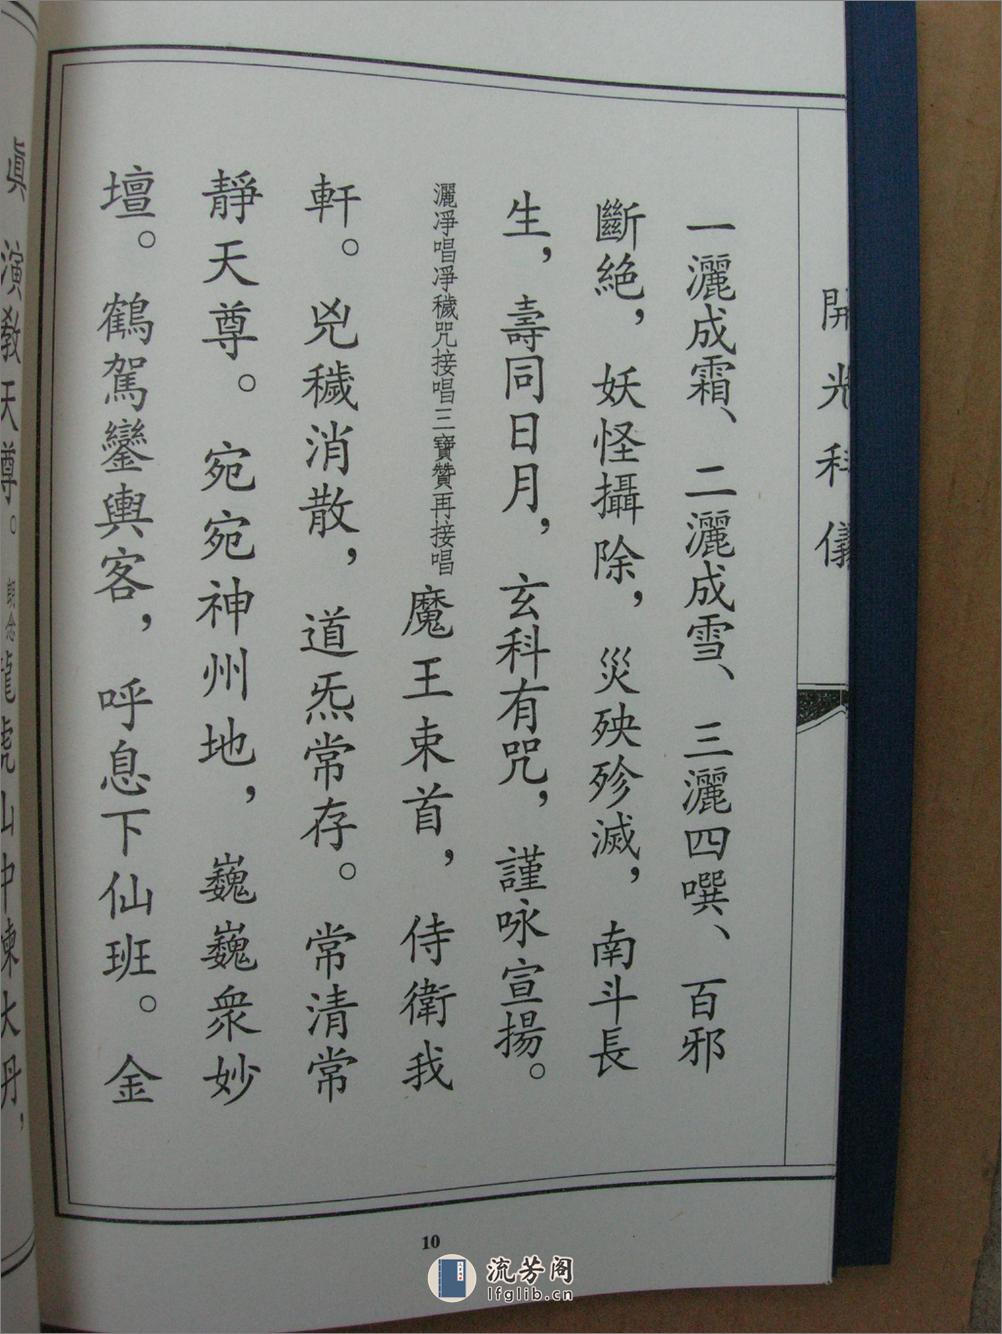 開光科儀
一灑成霜、二灑成雪、三灑四噀、百邪
斷絕，妖怪攝除，災殃殄滅，南斗長
生，壽同日月，玄科有咒，謹咏宣揚。
灑凈唱凈穢咒接唱三寶贊再接唱魔王束首，侍衛我
軒。兇穢消散，道炁常存。常清常
靜天尊。宛宛神州地，巍巍衆妙
壇。鶴駕鑾輿客，呼息下仙班。金
眞演教天尊。朗念龍虎山中煉大丹，
10
流芳阁
lfglib.cn